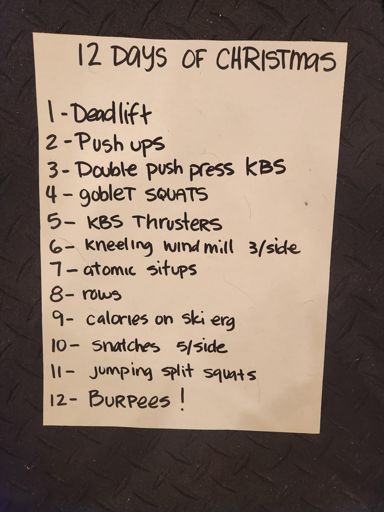 12 DAYS OF CHRISTMAS
1 - Deadlift
2 - Push ups
3 - Double push press KBS
4 - gobleT SQUATS
5 - KBS ThrusTeRS
6 - kneeling wind mill 3/side
7 - atomic situps
8 - rows
9 - calories on ski erg
10 - snatches 5/side
11 - jumping split squats
12 - BURPees !